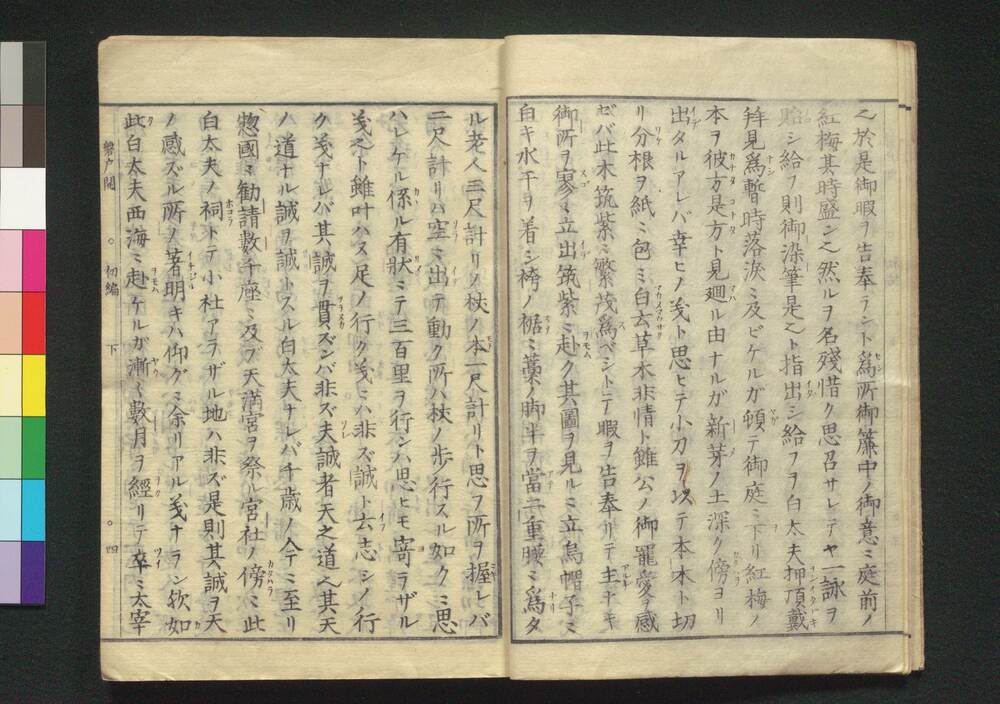 之於是御暇ヲ告奉ラント為所御簾中ノ御意ミ庭前ノ
紅梅其時盛ン之然ルヲ名残惜ク思召サレテヤ一詠ヲ
貽シ給フ則御染筆是之ト指出シ給フヲ白太夫押頂戴
拜見為暫時落涙ミ及ビケルガ頓テ御庭ミ下リ紅梅ノ
本ヲ彼方是方ト見廻ル由ナルガ新芽ノ土深ク傍ヨリ
出タルアレバ幸ヒノ義ト思ヒテ小刀ヲ以テ本木ト切
リ分根ヲ紙ミ包ミ白去草木非情ト雖公ノ御寵愛ヲ感
ゼバ此木筑紫ミ繁茂為ベシトテ暇ヲ告奉リテ主ナキ
御所ヲ寥ミ立出筑紫ミ赴ク其圖ヲ見ルミ立烏帽子ミ
白キ水干ヲ着シ袴ノ裾ミ藁ノ脚半ヲ當二重腰ミ為タ
ル老人三尺計リノ杖ノ本一尺計リト思フ所ヲ握レバ
二尺計リハ空ミ出テ動ク所ハ杖ノ歩行スル如クミ思
ハレケル係ル有狀ミテ三百里ヲ行ンハ思ヒモ寄ラザル
義之ト雖叶ハズ足ノ行ク義ミハ非ズ誠ト去志シノ行
ク義ナレバ其誠ヲ貫ズンバ非ズ夫誠者天之道之其天
ノ道ナル誠ヲ誠トスル白太夫ナレバ千歳ノ今ミ至リ
惣國ミ勧請數千座ミ及ブ天満宮ヲ祭ル宮社ノ傍ミ此
白太夫ノ祠トテ小社アラザル地ハ非ズ是則其誠ヲ天
ノ感ズル所ノ著明キハ仰グミ余リアル義ナラン欤如
此白太夫西海ミ赴ケルガ漸ミ數月ヲ經リテ卒ミ太宰
初編 下 四